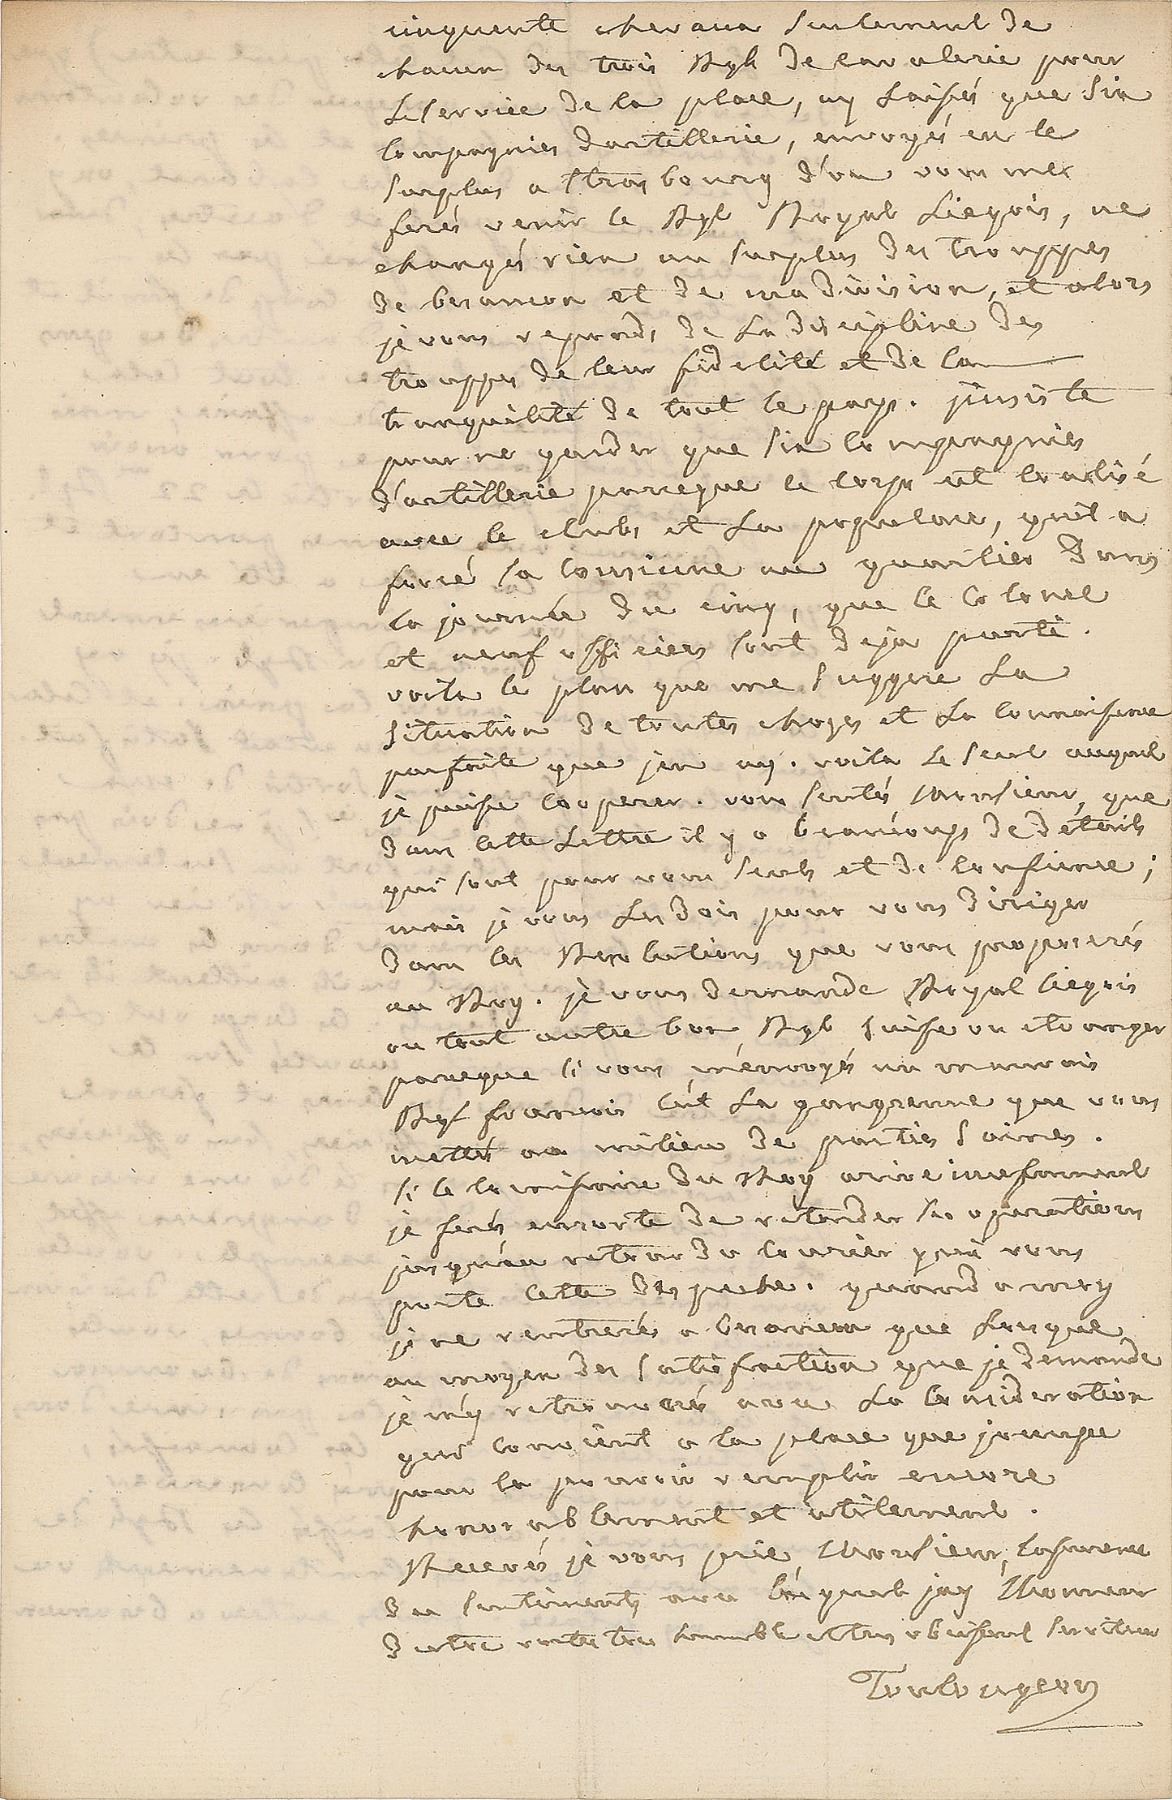 cinquente chevaux seulement de
chacun des trois Regts de cavalerie pour
le service de la place, ny laissés que six
compagnies dartillerie, envoyés en le
surplus a strasbourg d'ou vous me
ferés venir le Regt Royal Liegois, ne
changés rien au surplus des trouppes
de besancon et de ma division, et alors
je vous reponds de la discipline des
trouppes de leur fidelité et de la
tranquilité de tout le pays. jinsiste
pour ne garder que six compagnies
d'artillerie parceque le corps est coalisé
avec le clubs et la populace, quil a
forcé sa consigne au quartier dans
la journée du cinq, que le colonel
et neuf officiers sont deja parti.
voila le plan que me suggere la
situation de toutes choses et la connaissance
parfaite que jen ay. voila le seul auquel
je puisse cooperer. vous sentés Monsieur, que
dans cette Lettre il y a beaucoups de détails
qui sont pour vous seuls et de confience;
mais je vous les dois pour vous diriger
dans les Resolutions que vous proposerés
au Roy. je vous demande Royal liegois
ou tout autre bon Regt suisse ou etranger
parceque si vous m'envoyés un mauvais
Regt francois c'est la gangrenne que vous
mettés au milieu de parties saines.
si le commissaire du Roy arive incessament
je ferés ensorte de retarder ses operations
jusqu'au retour du courier qui vous
porte cette despeche. quand a moy
je ne rentrerés a besancon que lorsque
au moyen des satisfaction que je demande
je m'y retrouverés avec la consideration
qui convient a la place que joccupe
pour la pouvoir remplir encore
honorablement et utilement.
Recevés je vous prie Monsieur, lassurence
des sentiments avec lesquels jay l'honneur
detre votre tres humble et tres obeissant serviteur
Toulongeon